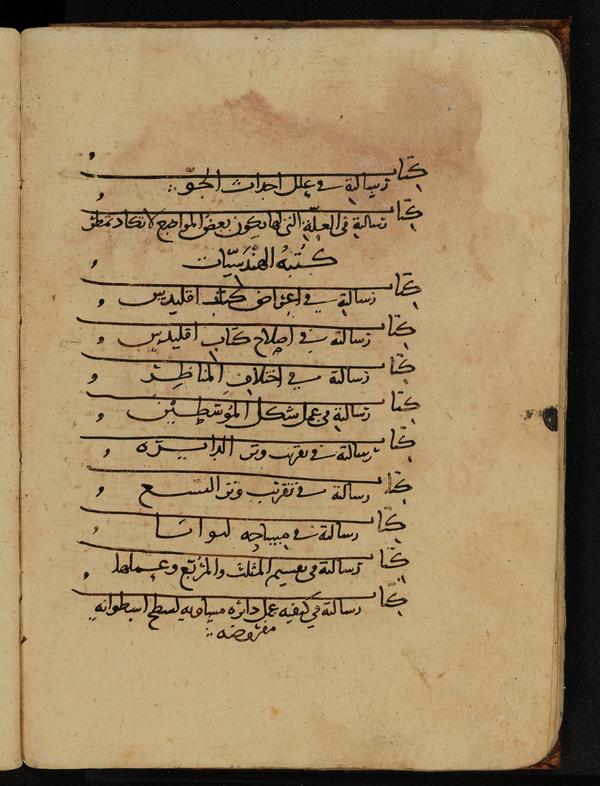 كتاب رسالة في علل احداث الجو
كتاب رسالة في العلة التي لها يكون بعض المواضع لا تكاد تمطر
كتبه الهندسيات
كتاب رسالة في اغراض كتاب اقليدس
كتاب رسالة في اصلاح كتاب اقليدس
كتاب رسالة في اختلاف المناظر
كتاب رسالة في عمل شكل الموسطين
كتاب رسالة في تقريب وتر الدايرة
كتاب رسالة في تقريب وتر التسع
كتاب رسالة في مساحه ايوان
كتاب رسالة في تقسيم المثلث والمربع وعملها
كتاب رسالة في كيفيه عمل دائره مساويه لسطح اسطوانه
مفروضه